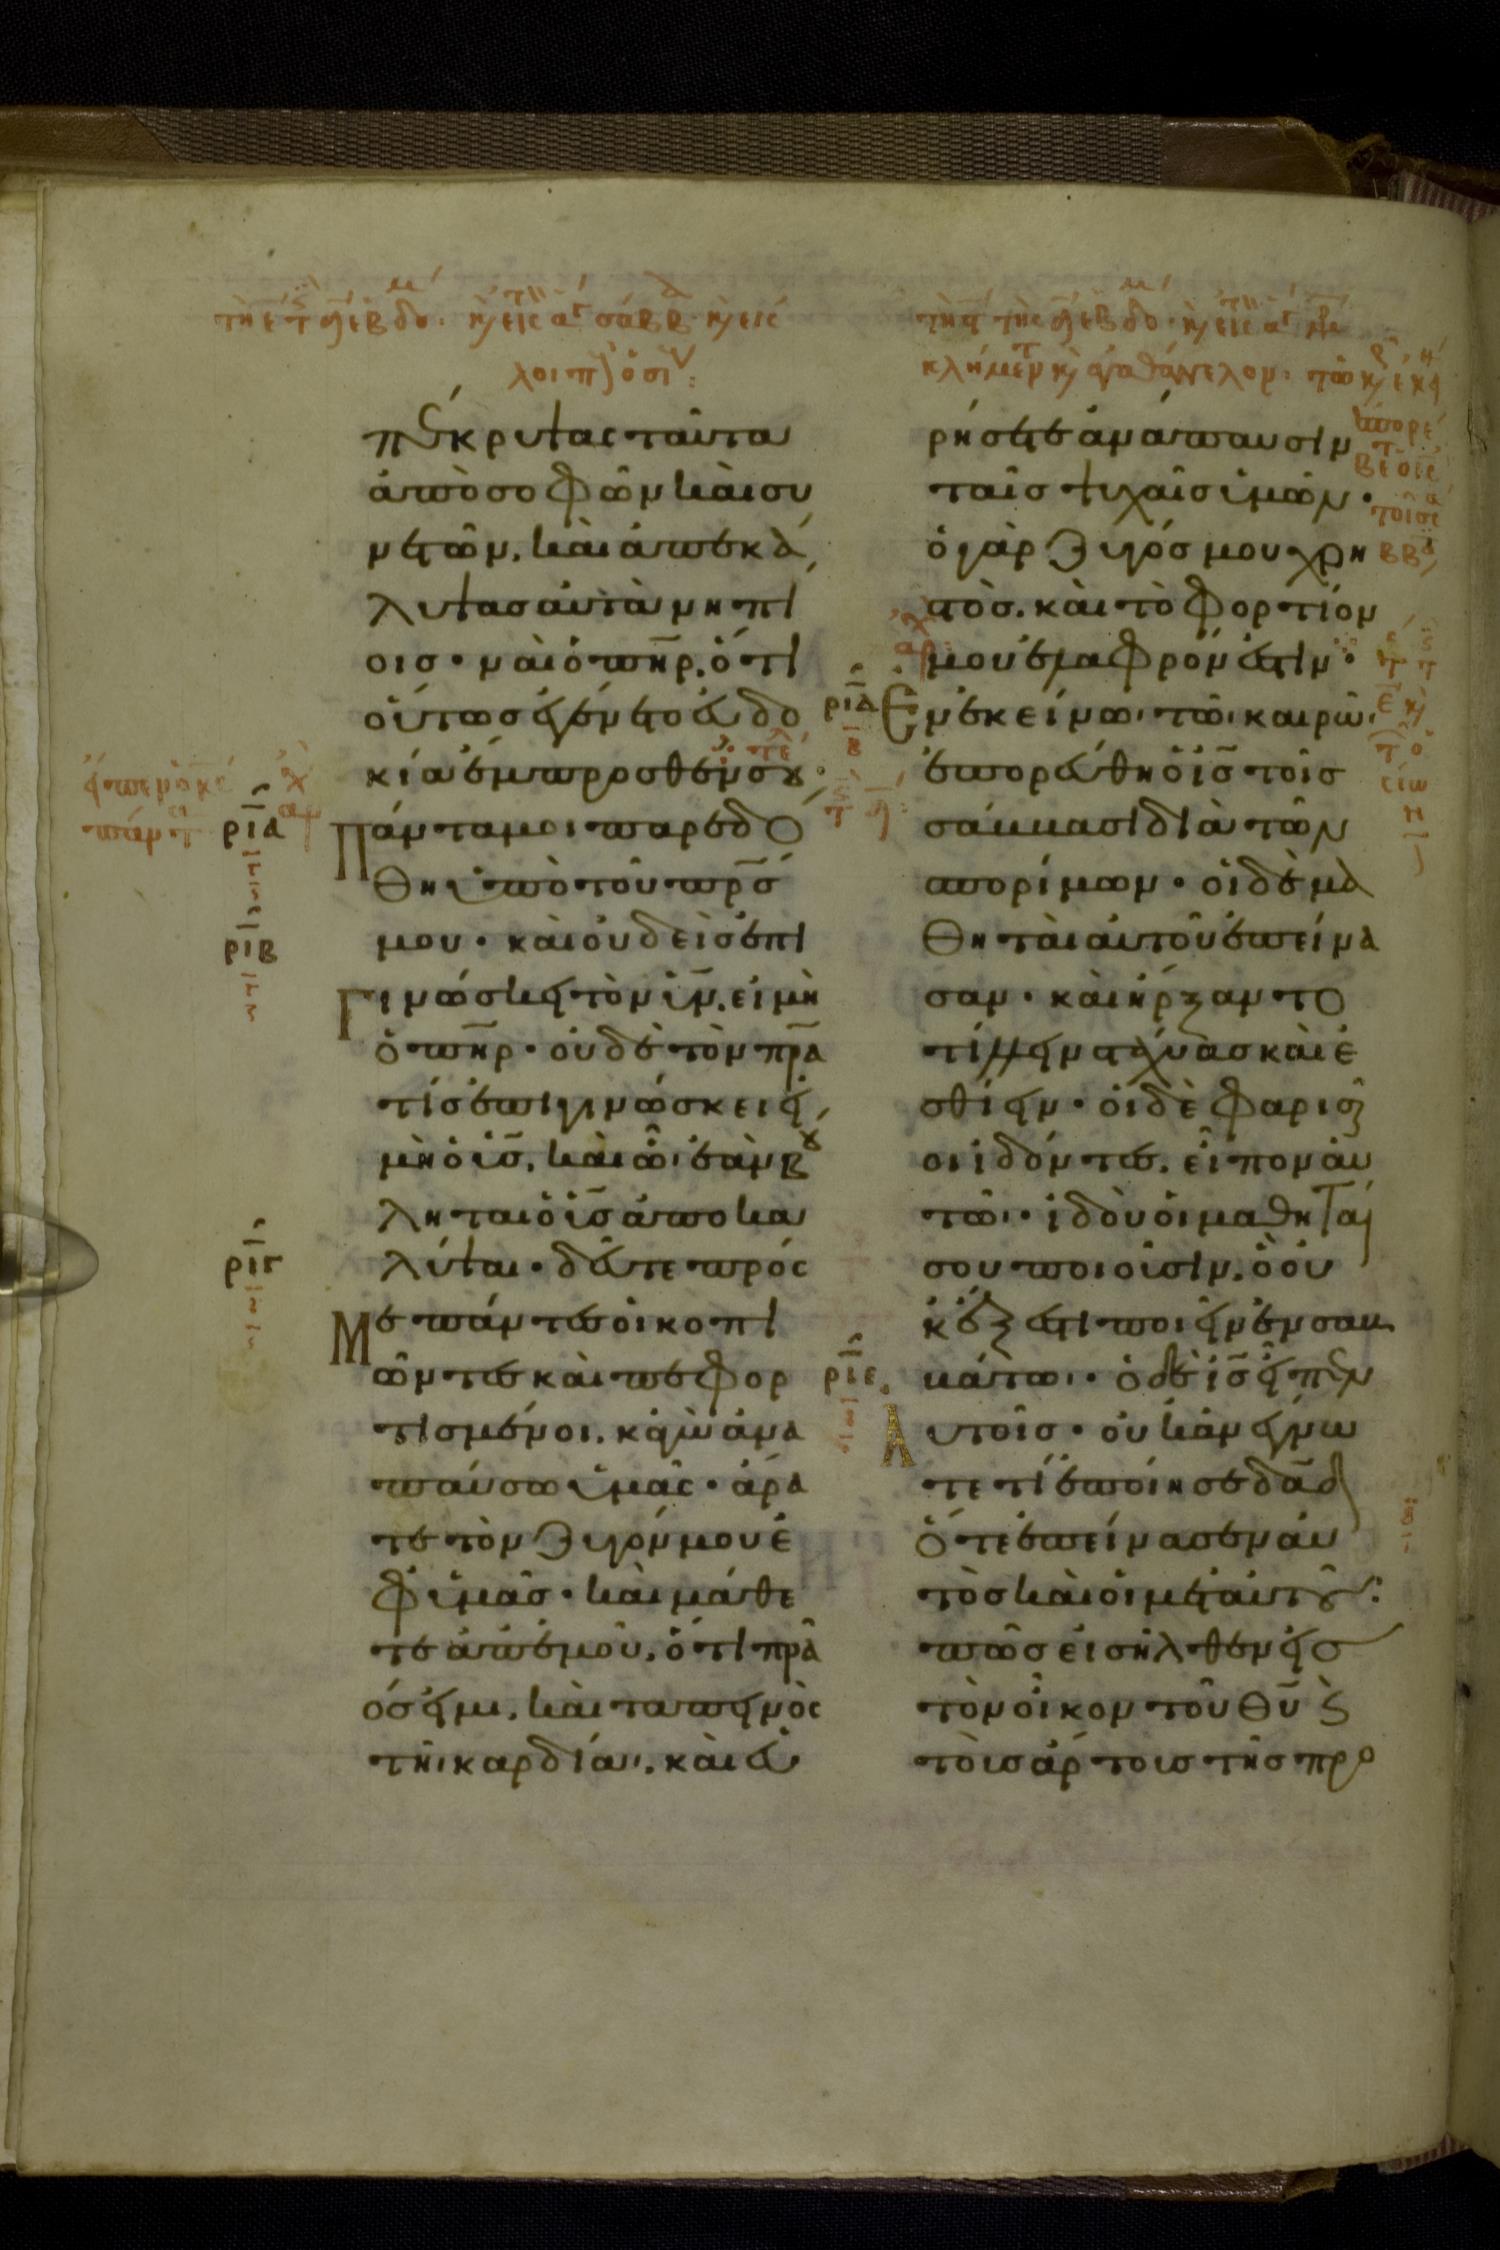 κρυψας ταῦτα
ἀπὸ σοφῶν καὶ συ
νετῶν. καὶ ἀπεκά
λυψας αὐτὰ νηπί
οισ · ναὶ ὁ πη̅ρ. ὅτι
οὕτωσ ἐγένετο εὐδο
κία ἔμπροσθέν σου ·
ρι̅α Πάντα μοι παρεδό
θη ὑπὸ τοῦ πρ̅σ
ρι̅β μου · καὶ οὐδεὶσ ἐπι
Γινώσκει τὸν υἱ̅ν. εἰ μὴ
ὁ πη̅ρ · οὐδὲ τὸν πρ̅α
τίσ ἐπιγινώσκει εἰ
μὴ ὁ υἱ̅σ. καὶ ὧι ἐὰν β
ληται ὁ υἱ̅σ ἀποκα
ρι̅γ λύψαι · δεῦτε πρόσ
Με πάντεσ οἱ κοπι
ῶντεσ καὶ πεφορ
τισμένοι. κἀγὼ ἀνα
παύσω ὑμᾶσ · ἄρα
τε τὸν ζυγόν μου ἐ
φ ὑμᾶσ · καὶ μάθε
τε ἀπ ἐμοῦ. ὅτι πρᾶ
όσ εἰμι. καὶ ταπεινὸσ
τῆι καρδίαι. καὶ εὑ
ρήσετε ἀνάπαυσιν
ταῖσ ψυχαῖσ ὑμῶν ·
ὁ γὰρ ζυγόσ μου χρη
στὸσ. καὶ τὸ φορτίον
μου ἐλαφρόν ἐστιν ·
ρι̅δ Ἐν ἐκείνωι τῶι καιρῶι
ἐπορεύθη ὁ ι̅σ τοῖσ
σάββασι διὰ τῶν
σπορίμων · οἱ δὲ μα
θηταὶ αὐτοῦ ἐπείνα
σαν · καὶ ἤρξαντο
τίλλειν στάχυασ καὶ ἐ
σθίειν · οἱ δὲ φαρισ
οι ἰδόντεσ. εἶπον αὐ
τῶι · ἰδοὺ οἱ μαθηταί
σου ποιοῦσιν. ὃ οὐ
κ ἔξεστι ποιεῖν ἐν σαβ
ρι̅ε βάτωι · ὁ δὲ ι̅σ εἶπεν
Αὐτοῖσ · οὐκ ἀνέγνω
τε τί ἐποίησε δα̅δ
ὅτε ἐπείνασεν αὐ
τὸσ καὶ οἱ μετ αὐτοῦ ·
πῶσ εἰσῆλθεν εἰσ
τὸν οἶκον τοῦ θυ̅ κ
τοὺσ ἄρτουσ τῆσ προ